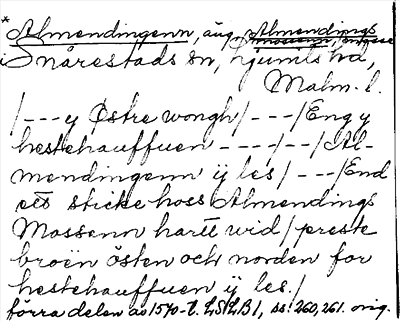 * Almendingenn, äng, Almendings
mossenn, engese
i Snårestads sn, Ljunits hd,
Malm. l.
/---y Østre wongh/---/Eng y
hestehauffuen ----/--/Al-
mendingenn ÿ les/---/End
ett sticke hoss Almendings
Mossenn hartt wid/preste
broën östen och norden for
hestehauffuen ÿ les./
förra delen av 1570-t. LSLB1, ss. 260, 261. orig.